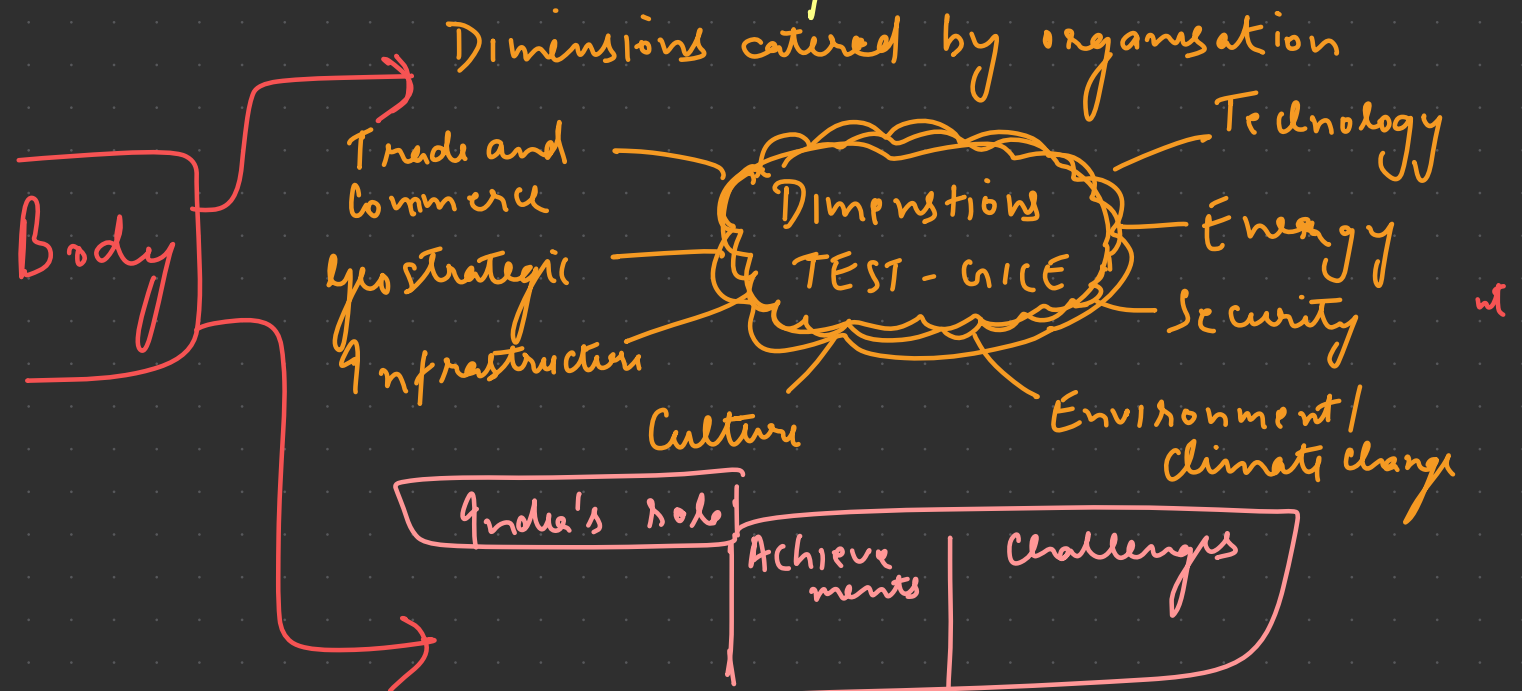 Dimensions catered by organisation
Body
Trade and
Commerce
Geostrategic
Infrastructure
Dimenstions
TEST - GICE
Technology
Energy
Security
Environment/
climate change
Culture
nt
India's role
Achieve
ments
Challenges